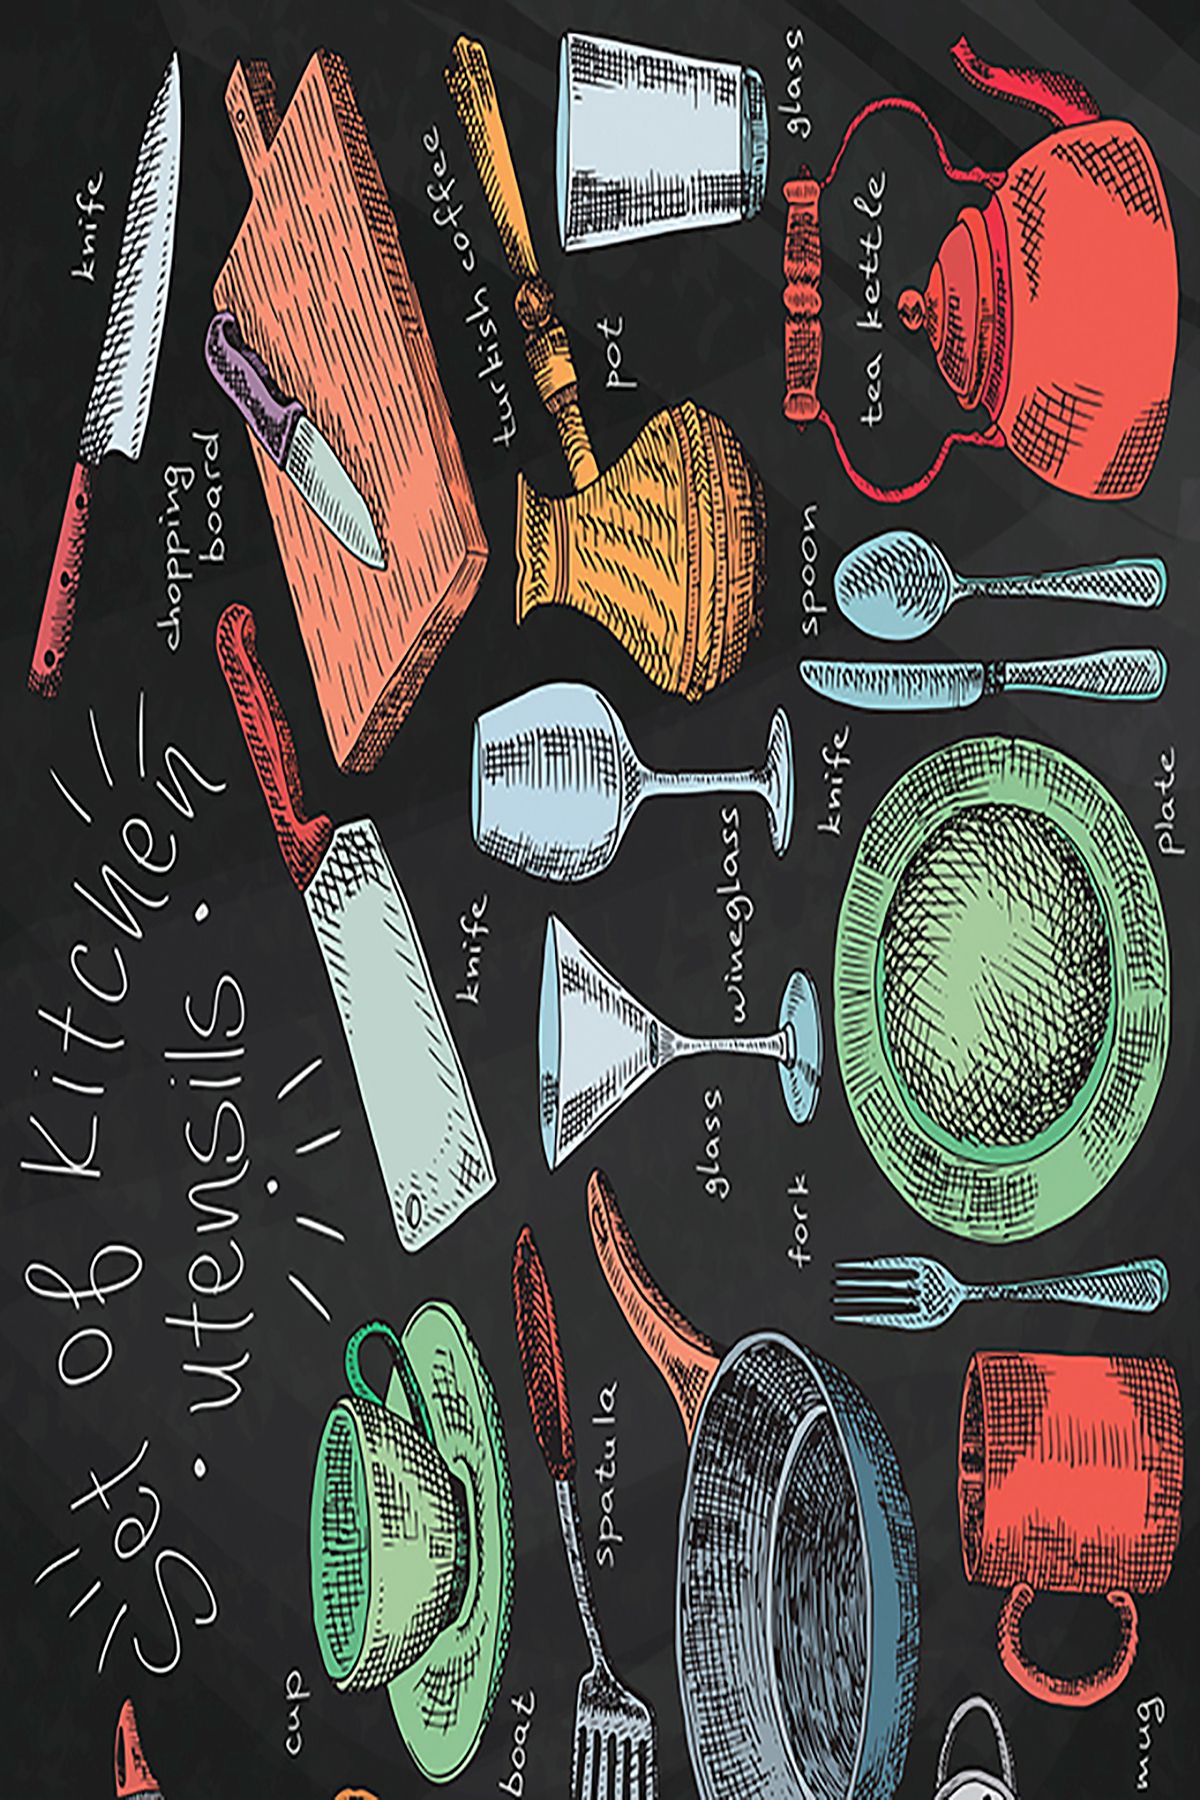 Set of kitchen
· utensils ·
knife
chopping
board
cup
knife
turkish coffee
pot
boat
spatula
glass
wineglass
glass
tea kettle
spoon
knife
fork
plate
mug